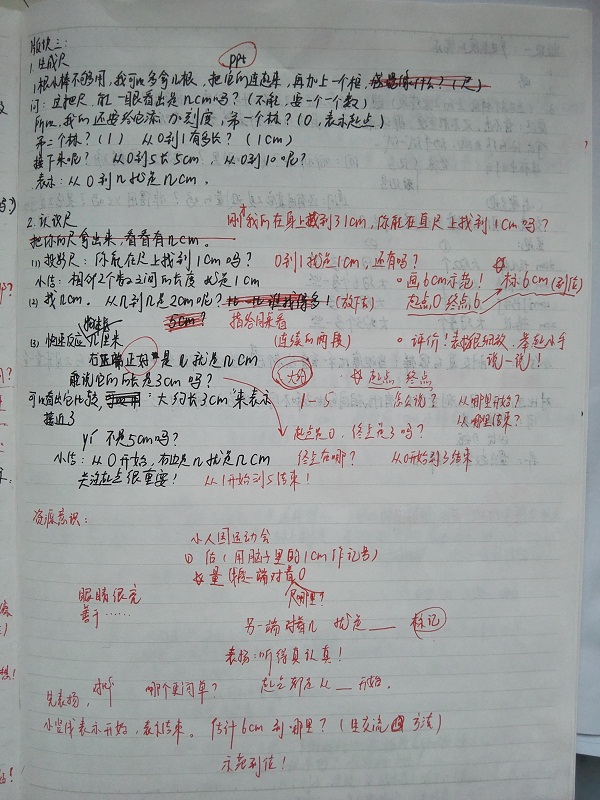 版块三:
1.生成尺 ppt
1根小棒不够用,我可以多拿几根,把它们连起来,再加上一个框,
问:这把尺,能一眼看出是几cm吗?(不能,要一个一个数)
所以,我们还要给它添加刻度,第一个标?(0,表示起点)
第二个标?(1) 从0到1有多长?(1cm)
接下来呢? 从0到5长5cm,从0到10呢?
表示:从0到几就是几cm。
2.认识尺 刚才我们在身上找到31cm,你能在直尺上找到1cm吗?
把你的尺拿出来,看看有几cm。
(1)投影尺:你能在尺上找到1cm吗? 0到1就是1cm,还有吗?
小结:相邻2个数之间的长度就是1cm 画6cm示范! 标6cm(到位)
(2)找几cm。从几到几是2cm呢? (放下去) 起点0 终点6
指给同桌看
(3)快速反应 (连续的两段) 评价!表扬很细致,
右边正好是几就是几cm 说一说!
能说它的长是3cm吗? 大约 起点 终点
可以看出它比较 "大约长3cm"来表示 1-5 怎么说? 从哪里开始?
接近3 从哪里结束?
为什么不是5cm吗? 起点是0,终点是3吗?
小结:从0开始,右边是几就是几cm 终点在哪? 从0开始到3结束
关注起点很重要! 从1开始到5结束!
资源意识:
小人国运动会
①估(用脑子里的1cm作记号)
量 线段一端对着0
眼睛很亮 尺哪里?
善于……
另一端对着几 就是___ 标记
表扬:听得真认真!
先表扬, 哪个更简单? 起点都是从__开始。
小竖线表示开始,表示结束。估计6cm到哪里?(生交流 方法)
示范到位!